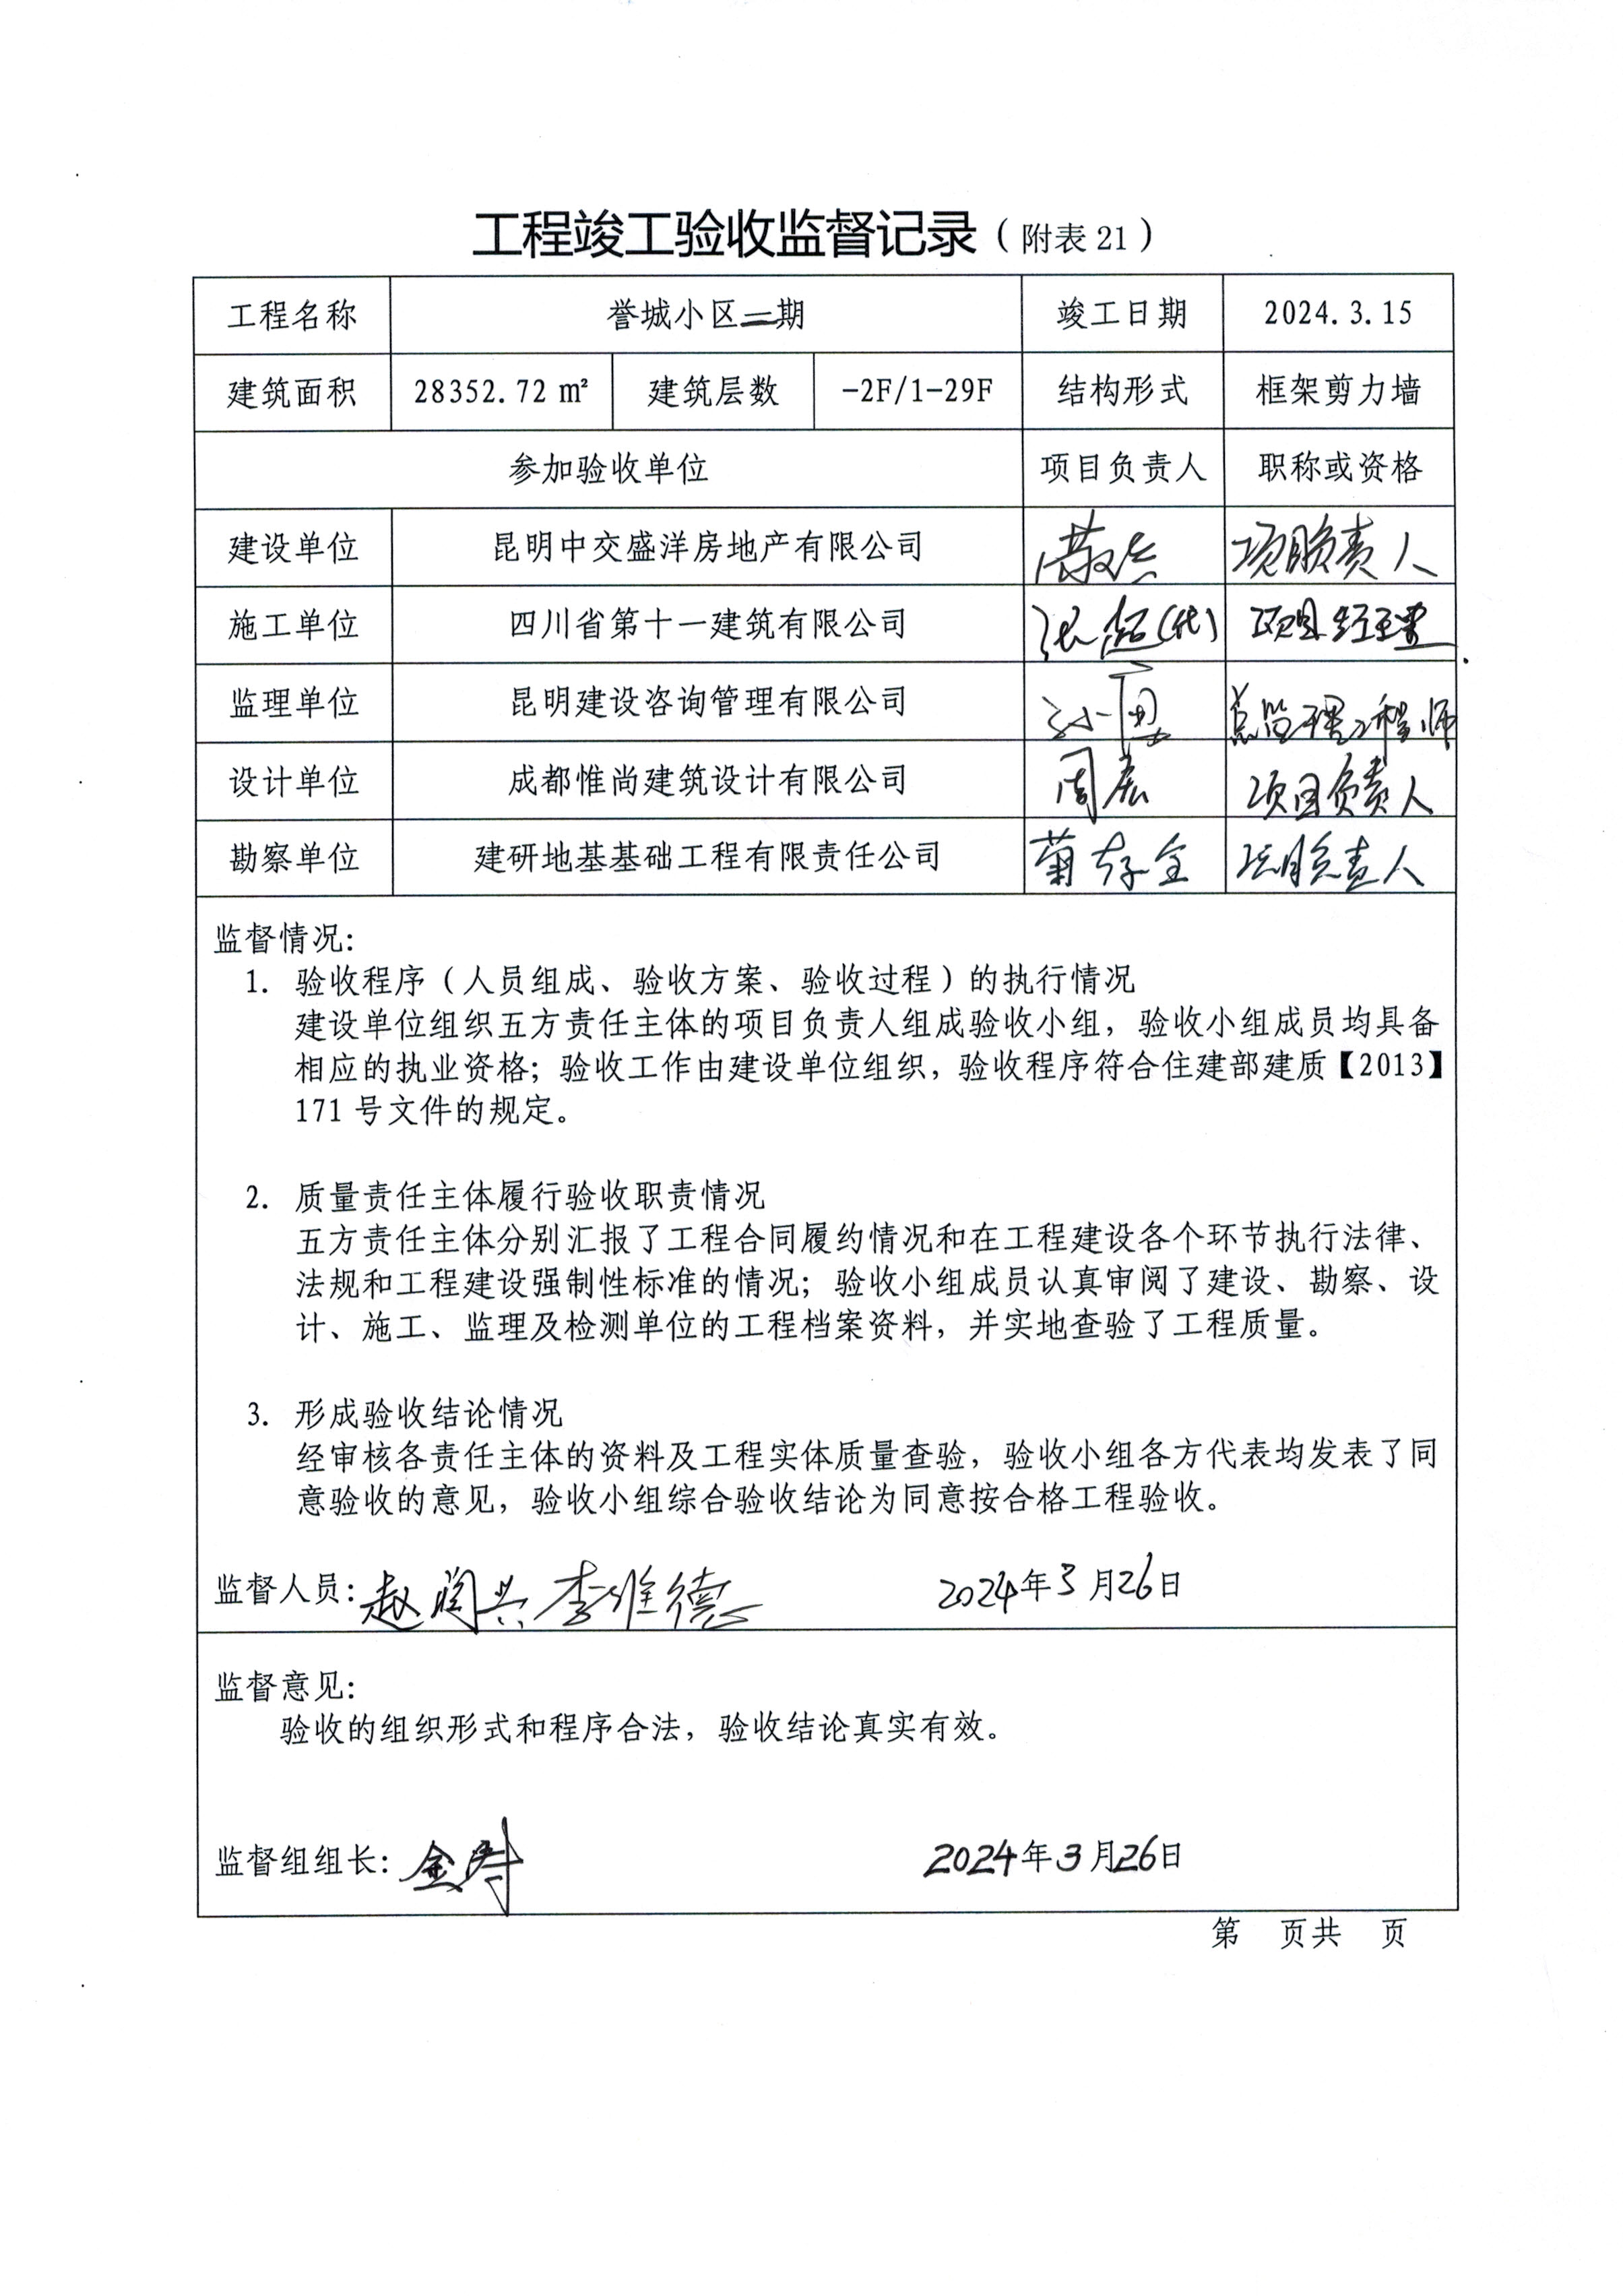 工程竣工验收监督记录（附表 21）
工程名称 誉城小区二期 竣工日期 2024.3.15
建筑面积 28352.72 ㎡ 建筑层数 -2F/1-29F 结构形式 框架剪力墙
参加验收单位 项目负责人 职称或资格
建设单位 昆明中交盛洋房地产有限公司 项目负责人
施工单位 四川省第十一建筑有限公司 张超(代) 项目经理
监理单位 昆明建设咨询管理有限公司 总监理工程师
设计单位 成都惟尚建筑设计有限公司 周宏 项目负责人
勘察单位 建研地基基础工程有限责任公司 项目负责人
监督情况：
1. 验收程序（人员组成、验收方案、验收过程）的执行情况
建设单位组织五方责任主体的项目负责人组成验收小组，验收小组成员均具备
相应的执业资格；验收工作由建设单位组织，验收程序符合住建部建质【2013】
171 号文件的规定。
2. 质量责任主体履行验收职责情况
五方责任主体分别汇报了工程合同履约情况和在工程建设各个环节执行法律、
法规和工程建设强制性标准的情况；验收小组成员认真审阅了建设、勘察、设
计、施工、监理及检测单位的工程档案资料，并实地查验了工程质量。
3. 形成验收结论情况
经审核各责任主体的资料及工程实体质量查验，验收小组各方代表均发表了同
意验收的意见，验收小组综合验收结论为同意按合格工程验收。
监督人员：赵润兴 李维德 2024年3月26日
监督意见：
验收的组织形式和程序合法，验收结论真实有效。
监督组组长： 2024年3月26日
第 页共 页